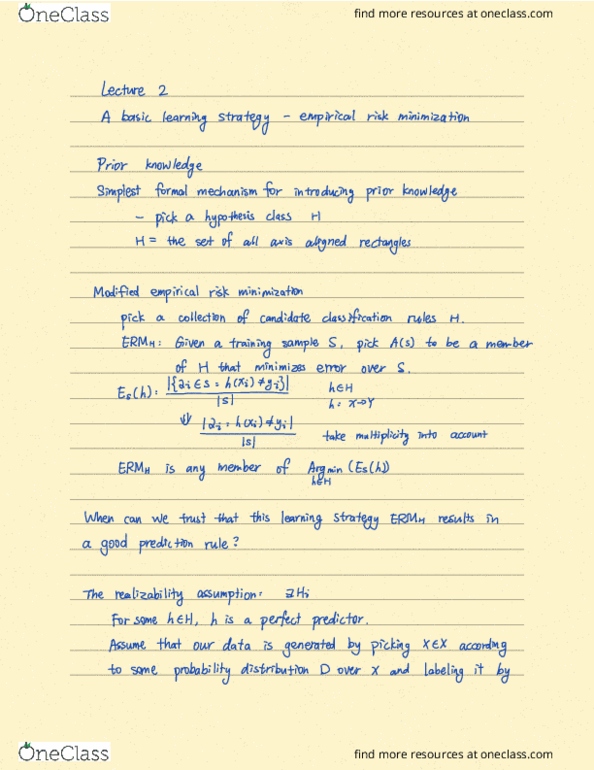 OneClass
find more resources at oneclass.com
Lecture 2
A basic learning strategy - empirical risk minimization
Prior knowledge
Simplest formal mechanism for introducing prior knowledge
- pick a hypothesis class H
H = the set of all axis aligned rectangles
Modified empirical risk minimization
pick a collection of candidate classification rules H.
ERM_H: Given a training sample S, pick A(s) to be a member
of H that minimizes error over S.
E_s(h): |{z_i ∈ s : h(x_i) ≠ y_i}| / |s| h∈H
h: X→Y
⇓ |z_i : h(x_i) ≠ y_i| / |s| take multiplicity into account
ERM_H is any member of Argmin_{h∈H} (E_s(h))
When can we trust that this learning strategy ERM_H results in
a good prediction rule?
The realizability assumption:
For some h∈H, h is a perfect predictor.
Assume that our data is generated by picking x∈X according
to some probability distribution D over X and labeling it by
OneClass
find more resources at oneclass.com